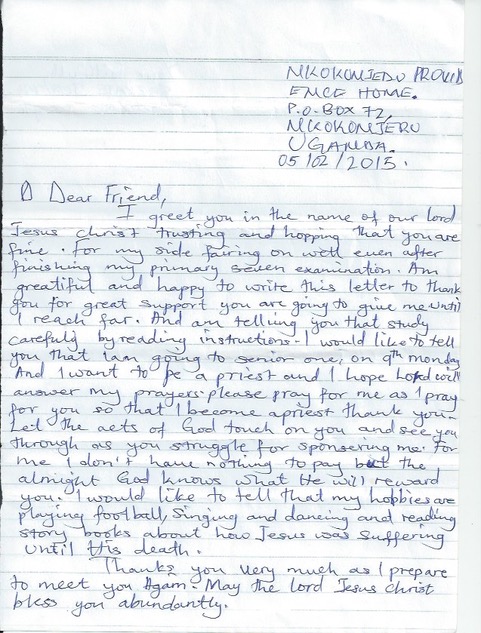 NKOKONJERU PROVID
ENCE HOME.
P.O.BOX 72,
NKOKONJERU
UGANDA.
05/02/2015.
Dear Friend,
I greet you in the name of our lord
Jesus christ trusting and hopping that you are
fine. For my side fairing on well even after
finishing my primary seven examination. Am
greatiful and happy to write this letter to thank
you for great support you are going to give me until
I reach far. And am telling you that study
carefully by reading instructions. I would like to tell
you that iam going to senior one, on 9th monday
And I want to be a priest and I hope Lord will
answer my prayers. please pray for me as I pray
for you so that I become apriest thank you.
Let the acts of God touch on you and see you
through as you struggle for sponsering me. For
me I don't have nothing to pay but the
almight God knows what He will reward
you. I would like to tell that my hobbies are
playing football, singing and dancing and reading
story books about how Jesus was suffering
until His death.
Thanks you very much as I prepare
to meet you Again. May the lord Jesus christ
bless you abundantly.